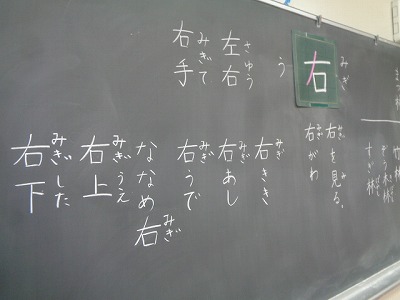 すぎ林
みぎ
右
う
さゆう
左右
みぎて
右手
みぎ み
右を見る。
みぎ
右がわ
みぎ
右きき
みぎ
右あし
みぎ
右うで
みぎ
ななめ右
みぎうえ
右上
みぎした
右下